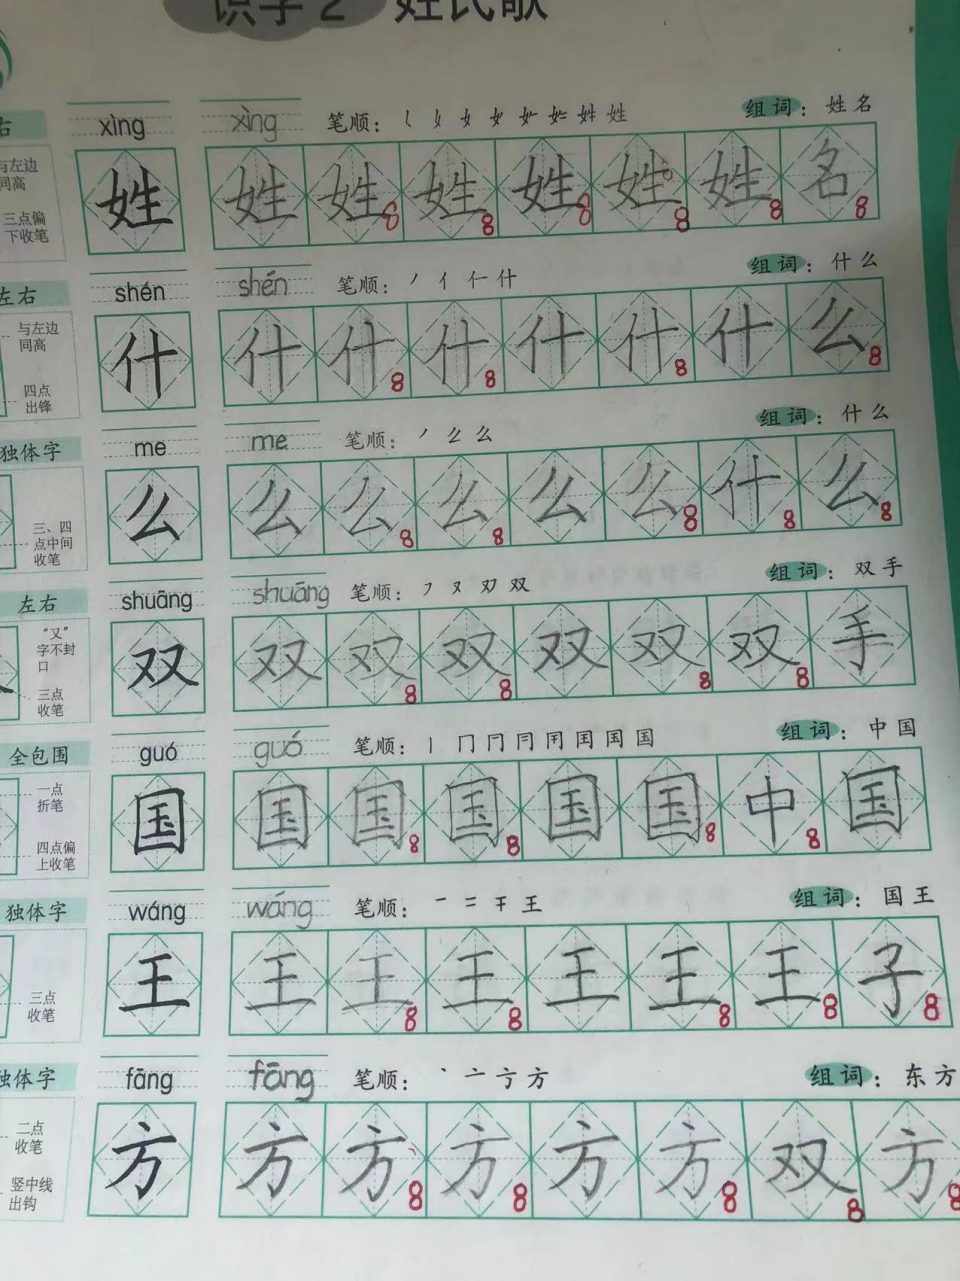 识字2 姓氏歌
右 xìng xìng 笔顺： 组词：姓名
与左边
同高
三点偏
下收笔
姓 姓 姓 姓 姓 姓 姓 名
8 8 8 8 8 8
左右 shén shén 笔顺： 组词：什么
与左边
同高
四点
出锋
什 什 什 什 什 什 什 么
8 8 8 8
独体字 me me 笔顺： 组词：什么
三、四
点中间
收笔
么 么 么 么 么 么 什 么
8 8 8 8 8
左右 shuāng shuāng 笔顺： 组词：双手
“又”
字不封
口
三点
收笔
双 双 双 双 双 双 双 手
8 8 8 8
全包围 guó guó 笔顺： 组词：中国
一点
折笔
四点偏
上收笔
国 国 国 国 国 国 中 国
8 8 8 8
独体字 wáng wáng 笔顺： 组词：国王
三点
收笔
王 王 王 王 王 王 王 子
8 8 8 8 8
独体字 fāng fāng 笔顺： 组词：东方
二点
收笔
竖中线
出钩
方 方 方 方 方 方 双 方
8 8 8 8 8